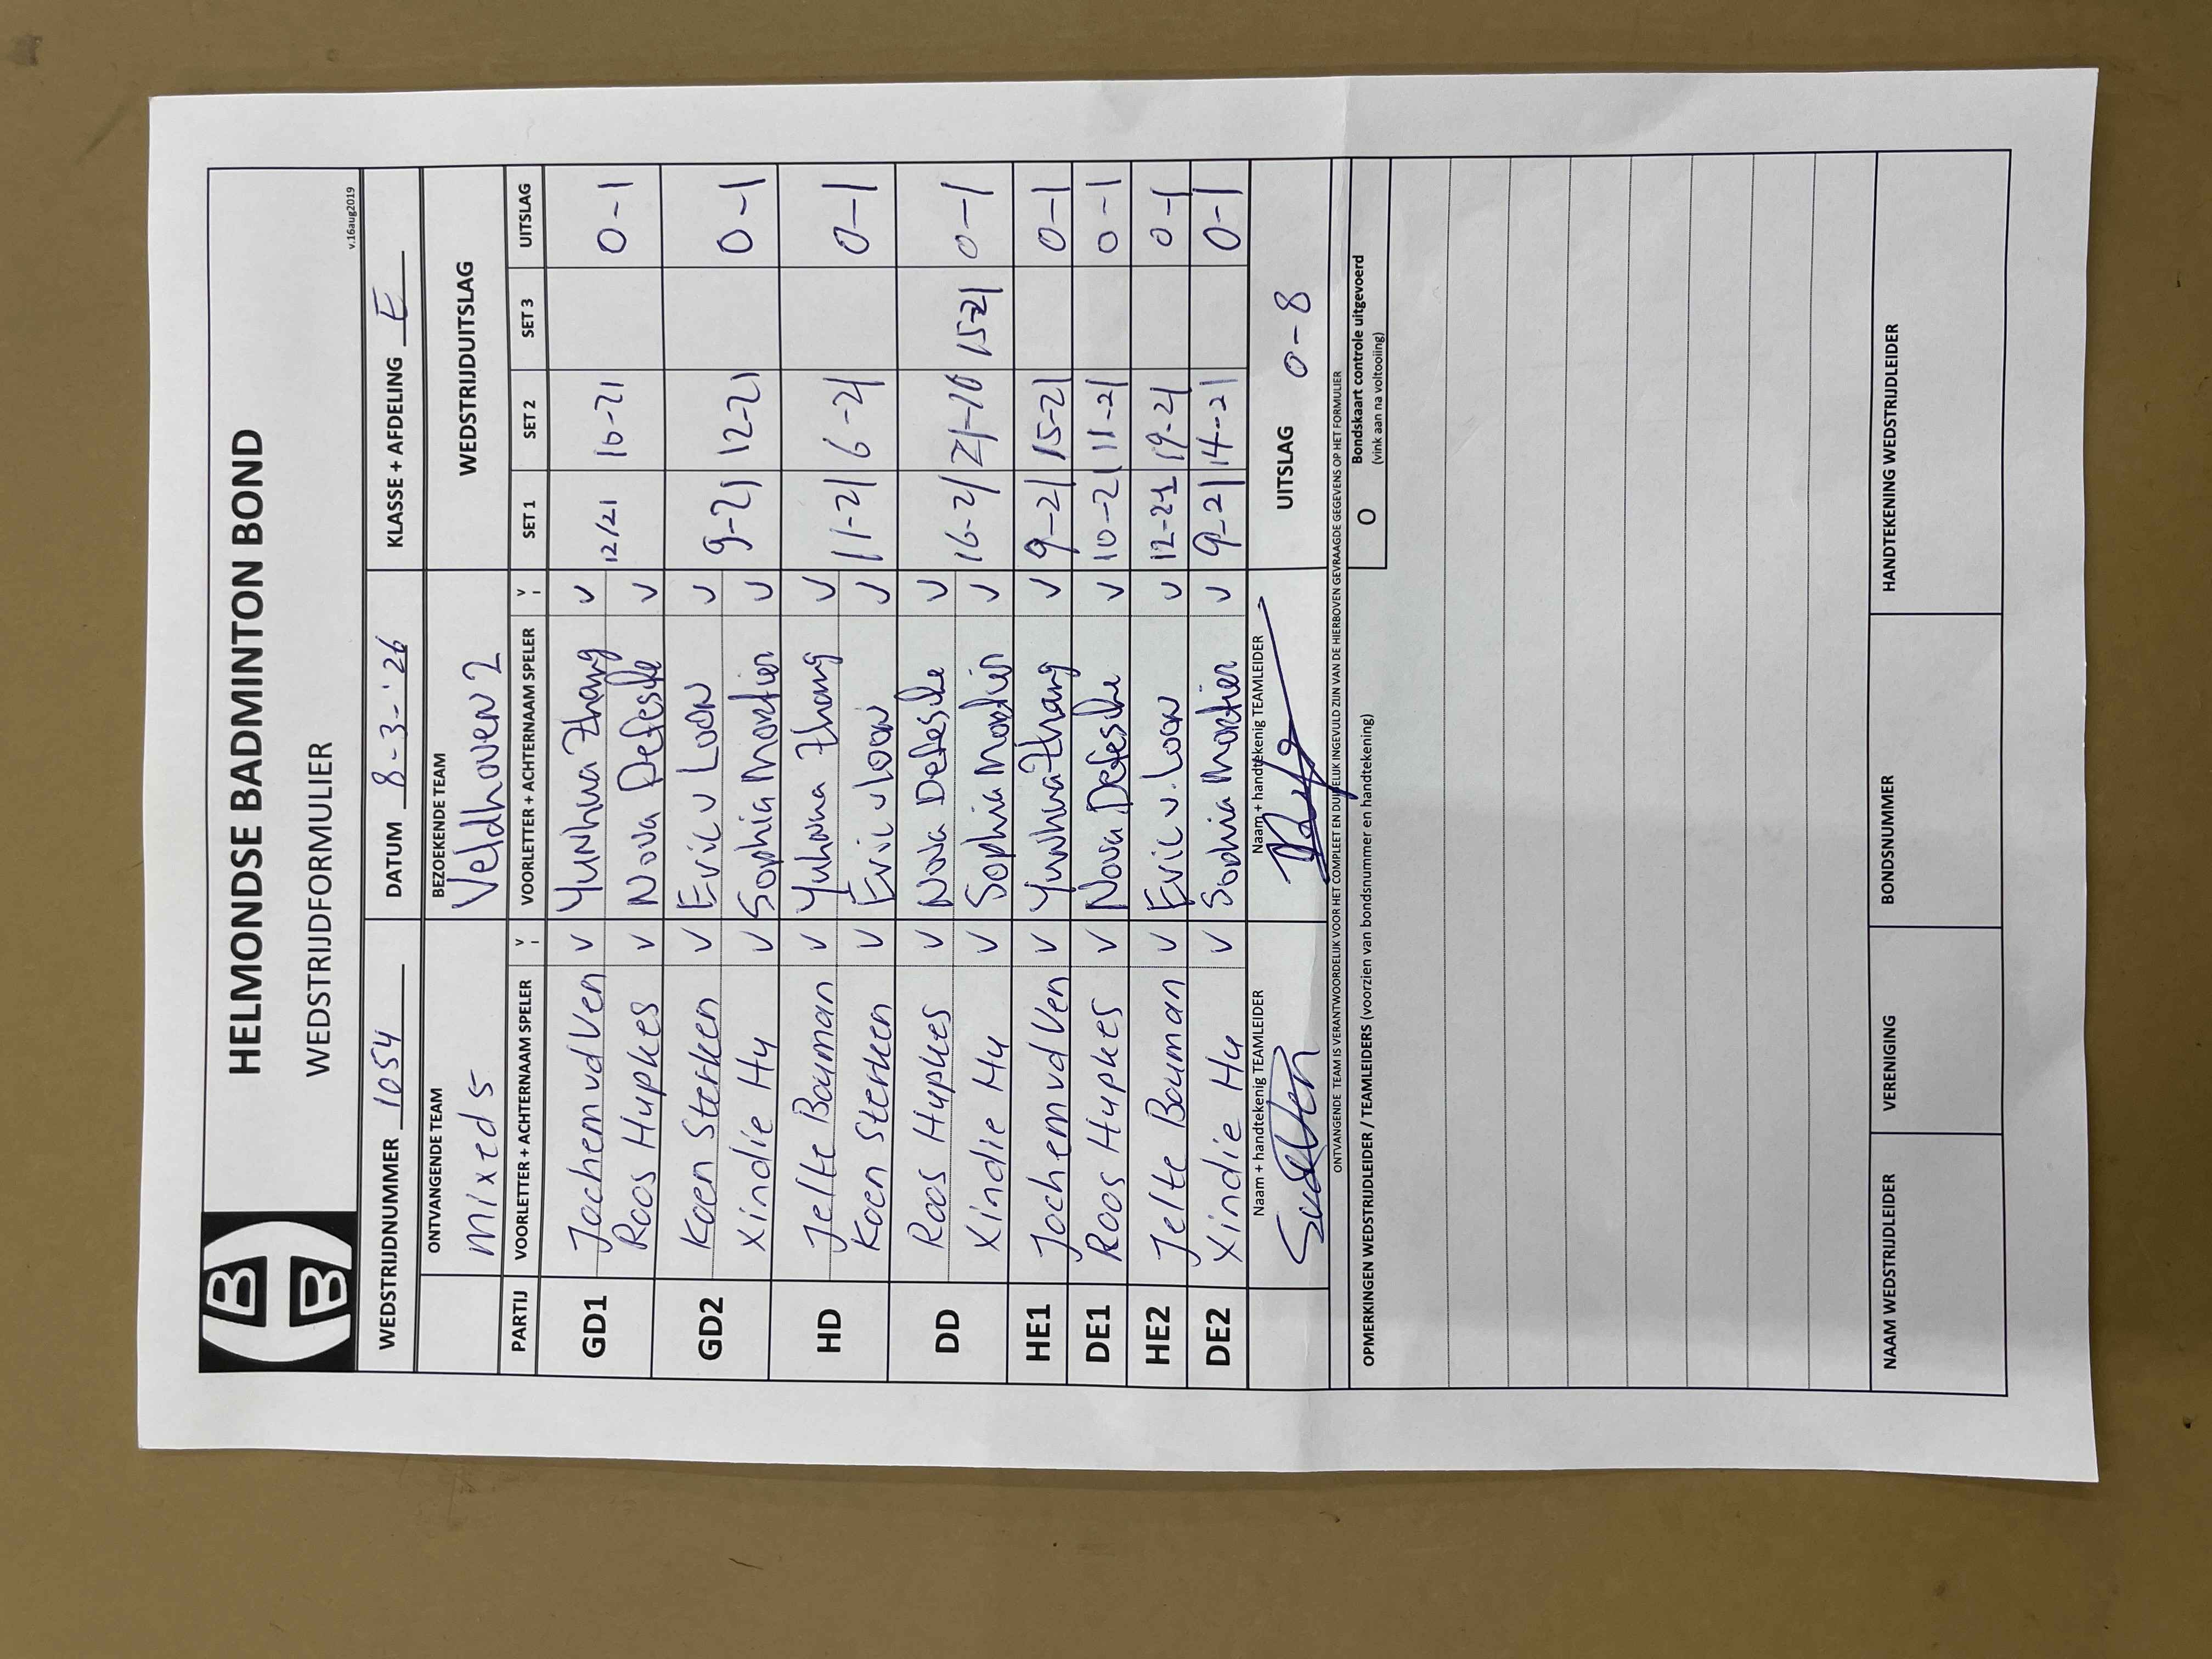 HELMONDSE BADMINTON BOND
WEDSTRIJDFORMULIER
v.16aug2019
WEDSTRIJDNUMMER 1054 DATUM 8-3-'26 KLASSE + AFDELING E
ONTVANGENDE TEAM BEZOEKENDE TEAM WEDSTRIJDUITSLAG
mixed 5 Veldhoven 2
PARTIJ VOORLETTER + ACHTERNAAM SPELER V VOORLETTER + ACHTERNAAM SPELER V SET 1 SET 2 SET 3 UITSLAG
GD1 Jochem vd Ven V Yunhua Zhang V 12/21 10-21 0-1
Roos Hupkes V Nova Defesche V
GD2 Koen Sterken V Eric v Loon V 9-21 12-21 0-1
Xindie Hu V Sophia Mortier V
HD Jelte Bouman V Yuhuna Zhang V 11-21 6-21 0-1
Koen Sterken V Eric v loon V
DD Roos Hupkes V Nova Defesche V 16-21 21-18 15-21 0-1
Xindie Hu V Sophia Mortier V
HE1 Jochem vd Ven V Yunhua Zhang V 9-21 15-21 0-1
DE1 Roos Hupkes V Nova Defesche V 10-21 11-21 0-1
HE2 Jelte Bouman V Eric v. Loon V 12-21 19-21 0-1
DE2 Xindie Hu V Sophia Mortier V 9-21 14-21 0-1
Naam + handtekenig TEAMLEIDER Naam + handtekenig TEAMLEIDER UITSLAG 0-8
ONTVANGENDE TEAM IS VERANTWOORDELIJK VOOR HET COMPLEET EN DUIDELIJK INGEVULD ZIJN VAN DE HIERBOVEN GEVRAAGDE GEGEVENS OP HET FORMULIER
OPMERKINGEN WEDSTRIJDLEIDER / TEAMLEIDERS (voorzien van bondsnummer en handtekening) O Bondskaart controle uitgevoerd
(vink aan na voltooiing)
NAAM WEDSTRIJDLEIDER VERENIGING BONDSNUMMER HANDTEKENING WEDSTRIJDLEIDER